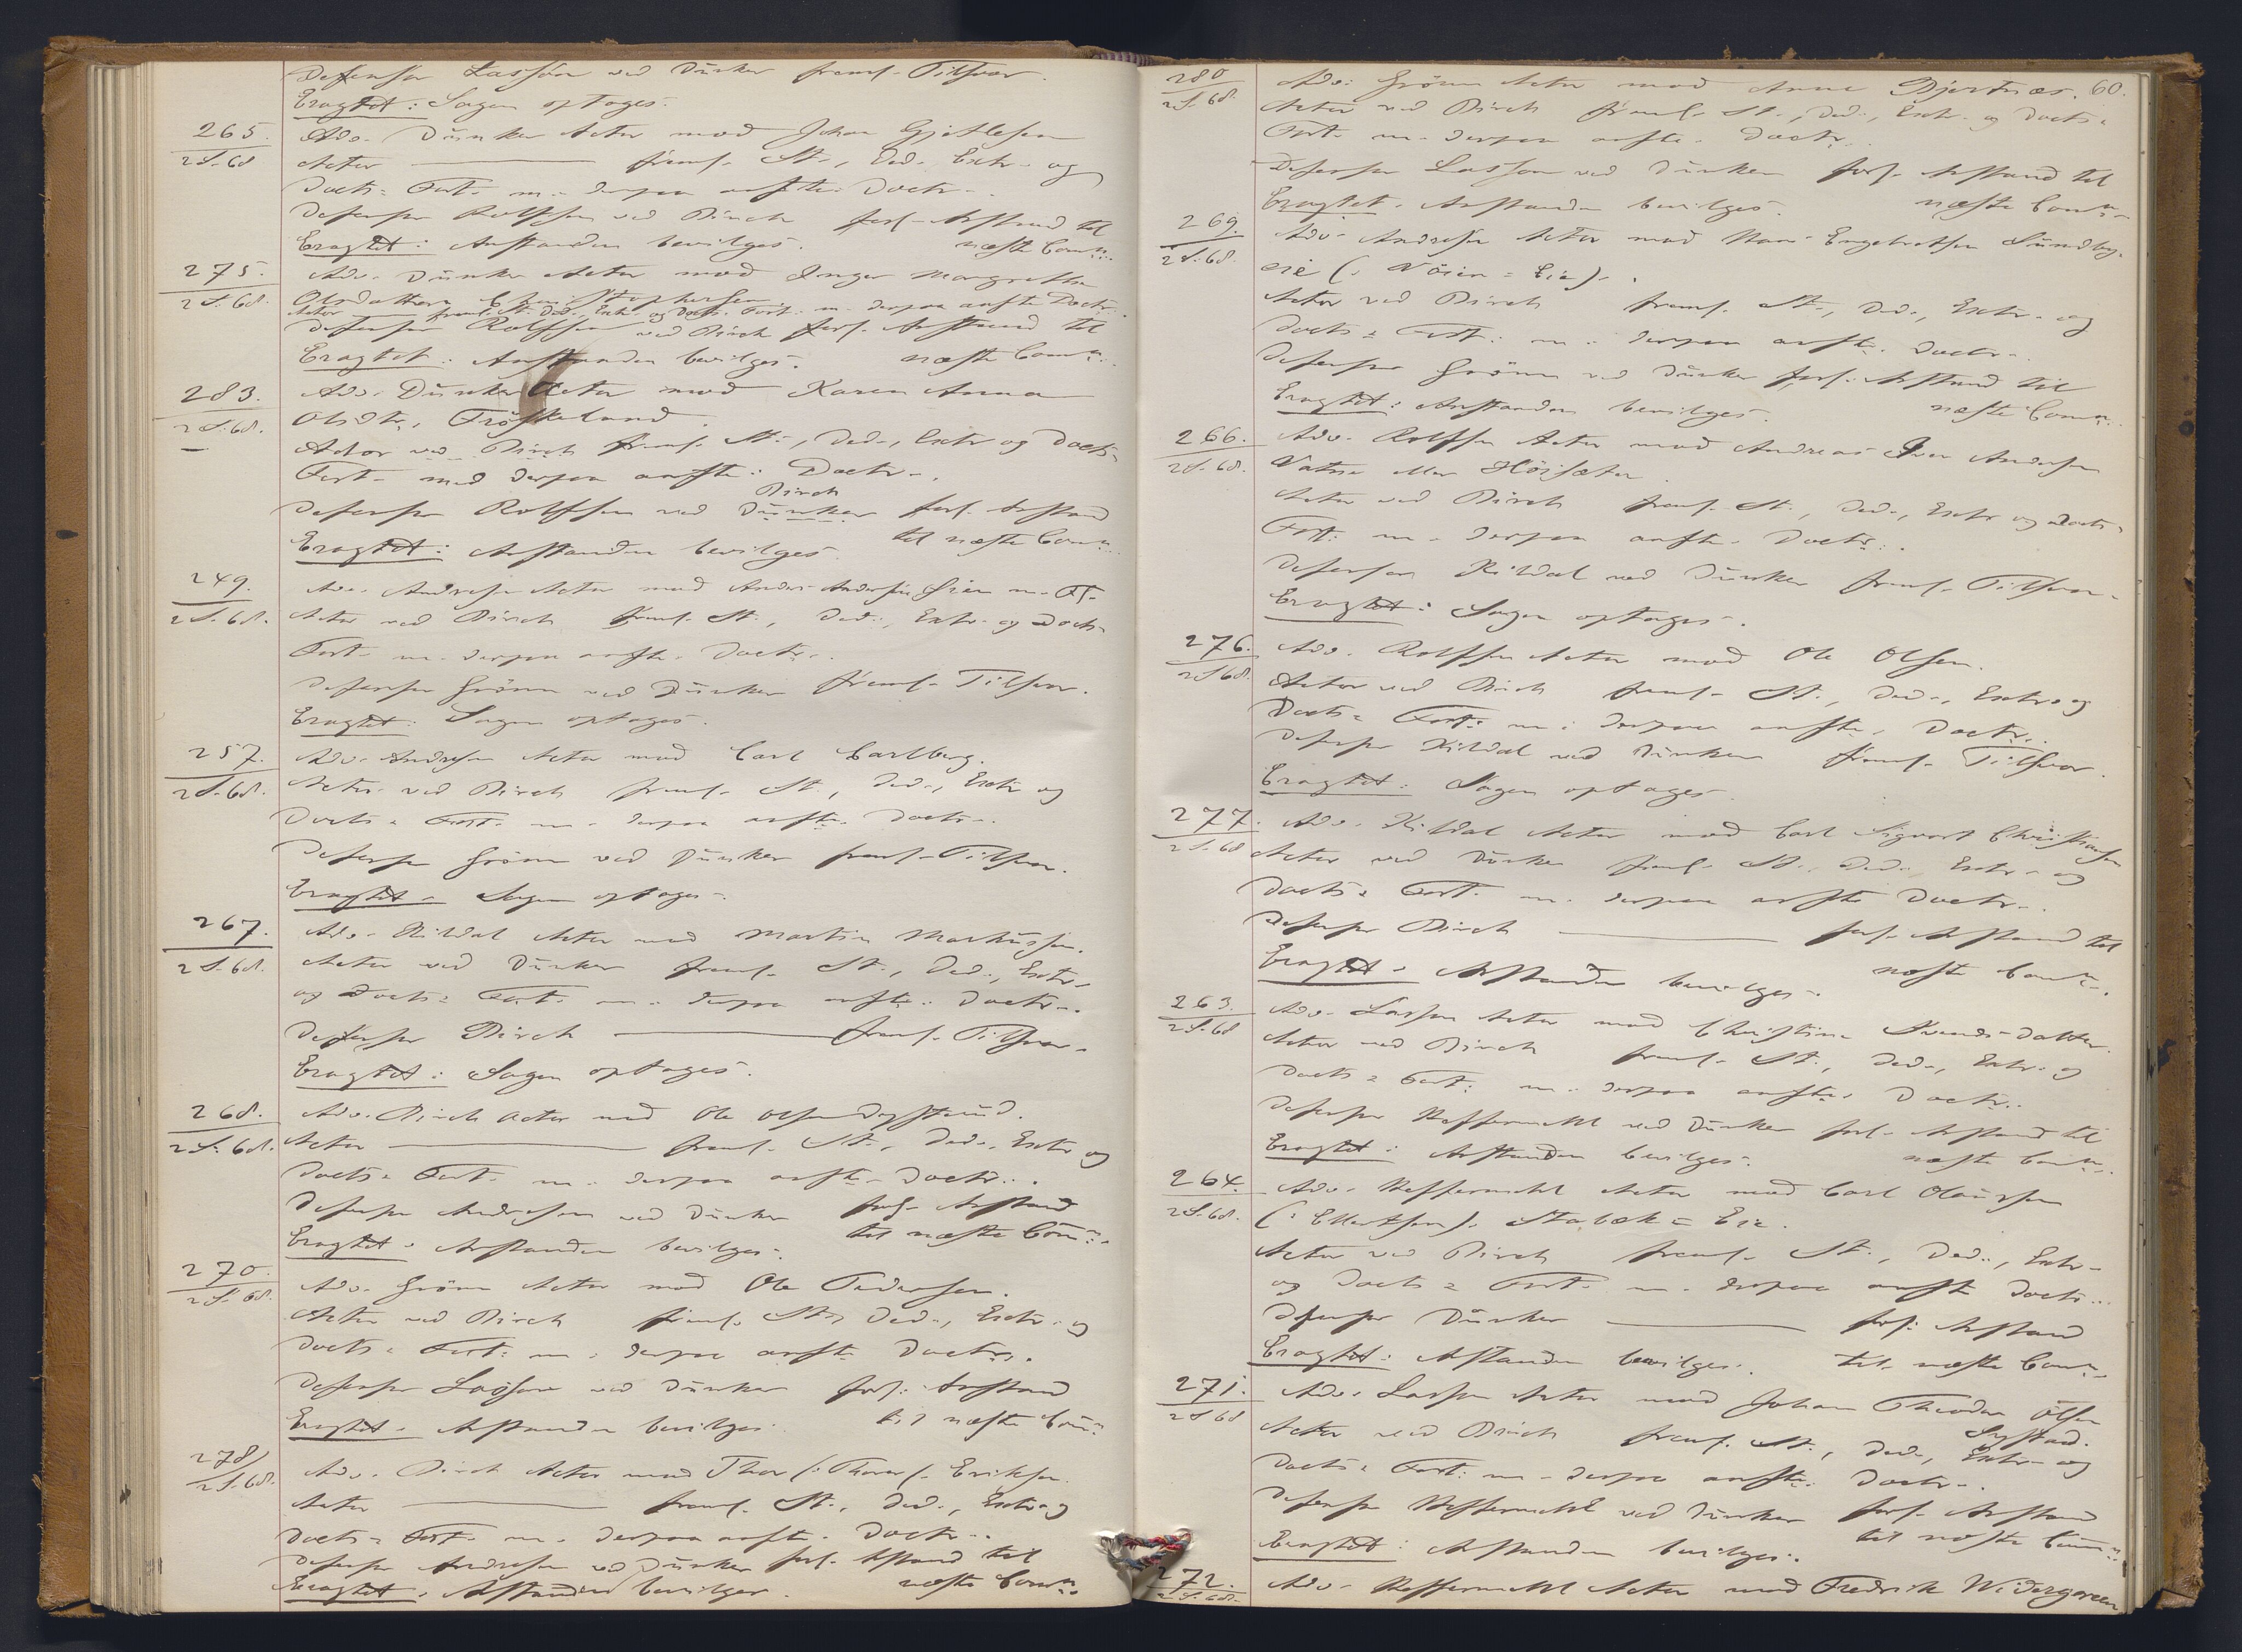 Defensor Lasson ved Dunker freml. Tilsvar.
Eragtet: Sagen optages.
265.
2 S. 68
Adv. Dunker Actor mod Johan Gjetlesen
Actor freml. St., Ded., Extr. og
Docts. Fort. m. derpaa anfte. Doctr.
Defensor Rolfsen ved Birch forl. Anstand til
Eragtet: Anstanden bevilges. næste Comn.
275.
2 S. 68.
Adv. Dunker Actor mod Inger Margrethe
Olsdatter Christophersen
Actor freml. St., Ded., Extr. og Docts. Fort. m. derpaa anfte Doctr.
Defensor Rolfsen ved Birch forl. Anstand til
Eragtet: Anstanden bevilges. næste Comn.
283.
2 S. 68.
Adv. Dunker Actor mod Karen Anna
Olsdtr. Fröskeland.
Actor ved Birch freml. St., Ded., Extr og Docts
Fort. med derpaa anfte. Doctr.
Birch
Defensor Rolfsen ved Dunker forl. Anstand
Eragtet: Anstanden bevilges. til næste Comn.
249.
2 S. 68.
Adv. Andresen Actor mod Anders Andersen m. Fl.
Actor ved Birch freml. St., Ded., Extr. og Docts
Fort. m. derpaa anfte. Doctr.
Defensor Grönn ved Dunker freml. Tilsvar.
Eragtet: Sagen optages.
257.
2 S. 68.
Adv. Andresen Actor mod Carl Carlberg.
Actor ved Birch freml. St., Ded., Extr og
Docts. Fort. m. derpaa anfte. Doctr.
Defensor Grönn ved Dunker freml. Tilsvar.
Eragtet. Sagen optages.
267.
2 S. 68.
Adv. Kildal Actor mod Martin Markussen.
Actor ved Dunker freml. St., Ded., Extr.
og Docts. Fort. m. derpaa anfte. Doctr.
Defensor Birch freml. Tilsvar.
Eragtet: Sagen optages.
268.
2 S. 68.
Adv. Birch Actor mod Ole Olsen
Actor freml. St., Ded., Extr og
Docts. Fort. m. derpaa anfte. Doctr.
Defensor Andresen ved Dunker forl. Anstand
Eragtet. Anstanden bevilges. til næste Comn.
270.
2 S. 68.
Adv. Grönn Actor mod Ole Pedersen.
Actor ved Birch freml. St., Ded., Extr. og
Docts. Fort. m. derpaa anfte. Doctr.
Defensor Lasson ved Dunker forl. Anstand
Eragtet. Anstanden bevilges. til næste Comn.
278
2 S. 68.
Adv. Birch Actor mod Thor (: Thorer :) Eriksen.
Actor freml. St., Ded., Extr og
Docts. Fort. m. derpaa anfte. Doctr.
Defensor Andresen ved Dunker forl. Anstand til
Eragtet. Anstanden bevilges. næste Comn.
60.
280
2 S. 68.
Adv. Grönn Actor mod Anne Djertnæs.
Actor ved Birch freml. St., Ded., Extr. og Docts.
Fort. m. derpaa anfte. Doctr.
Defensor Lasson ved Dunker forl. Anstand til
Eragtet. Anstanden bevilges. næste Comn.
269.
2 S. 68.
Adv. Andresen Actor mod Hans Engebretsen Sundby-
eie (: Nöien = Eie :).
Actor ved Birch freml. St., Ded., Extr. og
Docts. Fort. m. derpaa anfte. Doctr.
Defensor Grönn ved Dunker forl. Anstand til
Eragtet: Anstanden bevilges. næste Comn.
266.
2 S. 68.
Adv. Rolfsen Actor mod Andreas Iver Andersen
Vatne eller Höisæter.
Actor ved Birch freml. St., Ded., Extr og Docts
Fort. m. derpaa anfte. Doctr.
Defensor Kildal ved Dunker freml. Tilsvar.
Eragtet: Sagen optages.
276.
2 S. 68.
Adv. Rolfsen Actor mod Ole Olsen.
Actor ved Birch freml. St., Ded., Extr. og
Docts. Fort. m. derpaa anfte. Doctr.
Defensor Kildal ved Dunker freml. Tilsvar.
Eragtet: Sagen optages.
277.
2 S. 68
Adv. Kildal Actor mod Carl Sigvart Christiansen
Actor ved Dunker freml. St., Ded., Extr. og
Docts. Fort. m. derpaa anfte Doctr.
Defensor Birch forl. Anstand til
Eragtet. Anstanden bevilges. næste Comn.
263.
2 S. 68
Adv. Lasson Actor mod Christine Svends-datter.
Actor ved Birch freml. St., Ded., Extr. og
Docts. Fort. m. derpaa anfte. Doctr.
Defensor Heffermehl ved Dunker forl. Anstand til
Eragtet: Anstanden bevilges. næste Comn.
264.
2 S. 68.
Adv. Heffermehl Actor mod Carl Olaussen
(: Ellertsen :) Stabæk = Eie.
Actor ved Birch freml. St., Ded., Extr.
og Docts. Fort. m. derpaa anfte Doctr.
Defensor Dunker forl. Anstand
Eragtet: Anstanden bevilges. til næste Comn.
271.
2 S. 68
Adv. Lasson Actor mod Johan Theodor Olsen
Systad.
Actor ved Birch freml. St., Ded., Extr. og
Docts. Fort. m. derpaa anfte. Doctr.
Defensor Heffermehl ved Dunker forl. Anstand
Eragtet: Anstanden bevilges. til næste Comn.
272.
2 S. 68.
Adv. Heffermehl Actor mod Fredrik Widergreen